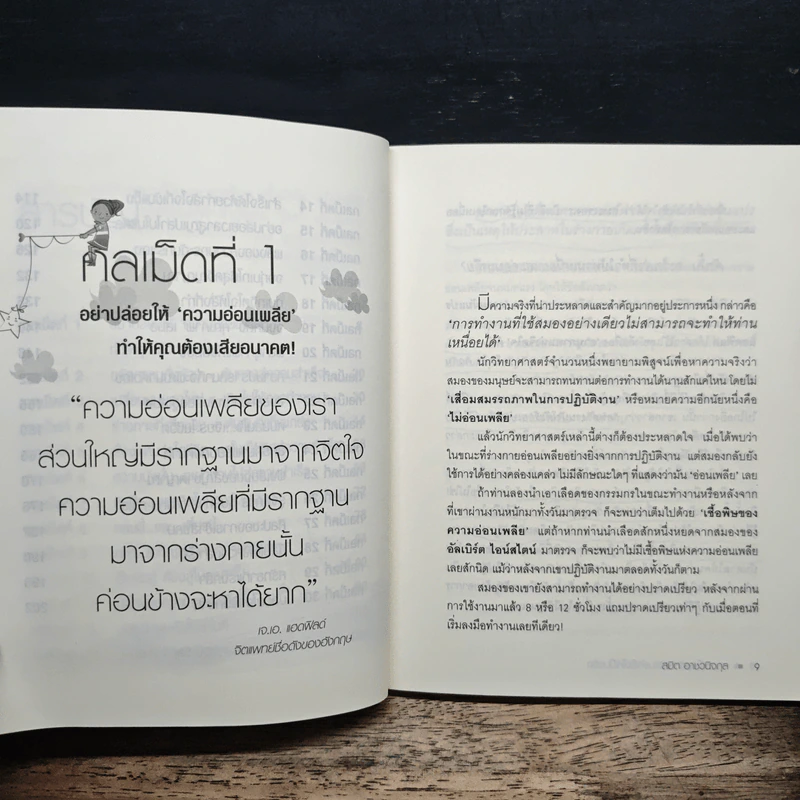 กลเม็ดที่ 1
อย่าปล่อยให้ ‘ความอ่อนเพลีย’
ทำให้คุณต้องเสียอนาคต!
“ความอ่อนเพลียของเรา
ส่วนใหญ่มีรากฐานมาจากจิตใจ
ความอ่อนเพลียที่มีรากฐาน
มาจากร่างกายนั้น
ค่อนข้างจะหาได้ยาก”
เจ.เอ. แฮดฟิลด์
จิตแพทย์ชื่อดังของอังกฤษ
มีความจริงที่น่าประหลาดและสำคัญมากอยู่ประการหนึ่ง กล่าวคือ
‘การทำงานที่ใช้สมองอย่างเดียวไม่สามารถจะทำให้ท่าน
เหนื่อยได้’
นักวิทยาศาสตร์จำนวนหนึ่งพยายามพิสูจน์เพื่อหาความจริงว่า
สมองของมนุษย์จะสามารถทนทานต่อการทำงานได้นานสักแค่ไหน โดยไม่
‘เสื่อมสมรรถภาพในการปฏิบัติงาน’ หรือหมายความอีกนัยหนึ่งคือ
‘ไม่อ่อนเพลีย’
แล้วนักวิทยาศาสตร์เหล่านี้ต่างก็ต้องประหลาดใจ เมื่อได้พบว่า
ในขณะที่ร่างกายอ่อนเพลียอย่างยิ่งจากการปฏิบัติงาน แต่สมองกลับยัง
ใช้การได้อย่างคล่องแคล่ว ไม่มีลักษณะใดๆ ที่แสดงว่ามัน ‘อ่อนเพลีย’ เลย
ถ้าท่านลองนำเอาเลือดของกรรมกรในขณะทำงานหรือหลังจาก
ที่เขาผ่านงานหนักมาทั้งวันมาตรวจ ก็จะพบว่าเต็มไปด้วย ‘เชื้อพิษของ
ความอ่อนเพลีย’ แต่ถ้าหากท่านนำเลือดสักหนึ่งหยดจากสมองของ
อัลเบิร์ต ไอน์สไตน์ มาตรวจ ก็จะพบว่าไม่มีเชื้อพิษแห่งความอ่อนเพลีย
เลยสักนิด แม้ว่าหลังจากเขาปฏิบัติงานมาตลอดทั้งวันก็ตาม
สมองของเขายังสามารถทำงานได้อย่างปราดเปรียว หลังจากผ่าน
การใช้งานมาแล้ว 8 หรือ 12 ชั่วโมง แถมปราดเปรียวเท่าๆ กับเมื่อตอนที่
เริ่มลงมือทำงานเลยทีเดียว!
สมิต อาชวนิจกุล ๙